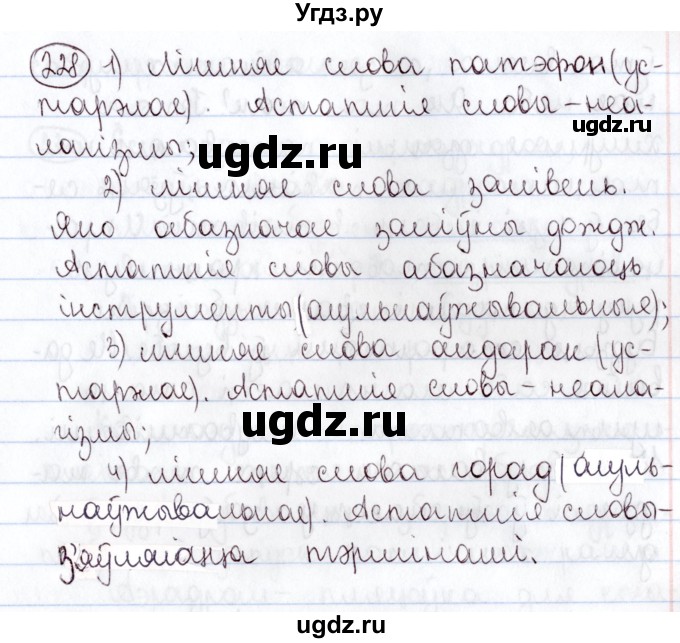 Угдз.ру
228 1) Лішняе слова патэфон (ус-
тарэлае). Астатнія словы – неа-
лагізмы;
ugdz.ru
2) лішняе слова залівень.
Яно абазначае заліўны дождж.
Астатнія словы абазначаюць
інструменты (агульнаўжывальныя);
3) лішняе слова андарак (ус-
тарэлае). Астатнія словы – неала-
гізмы;
ugdz.ru
4) лішняе слова горад (агуль-
наўжывальнае). Астатнія словы –
з'яўляюцца тэрмінамі.
ugdz.ru